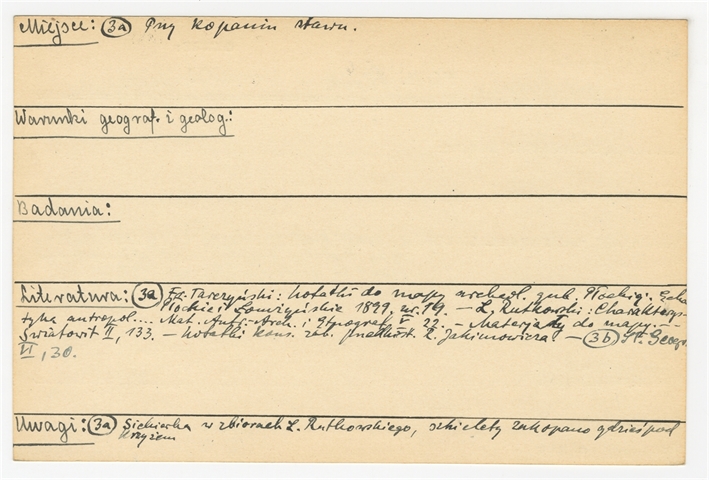 Miejsce: (3a) Przy kopaniu stawu.
Warunki geograf. i geolog.:
Badania:
Literatura: (3a) Fr. Tarczyński: Notatki do mapy archeol. gub. Płockiej. Echa
Płockie i Łomżyńskie 1899, nr. 19. — L. Rutkowski: Charakterys-
tyka antropol.... Mat. Antr.-Arch. i Etnograf. V 22. — Materjały do mapy... —
Światowit II, 133. — Notatki kons. zab. przedhist. R. Jakimowicza. — (3b) Sł. Geogr.
VI, 30.
Uwagi: (3a) Siekierka w zbiorach L. Rutkowskiego, szkielety zakopano gdzieś pod
krzyżem